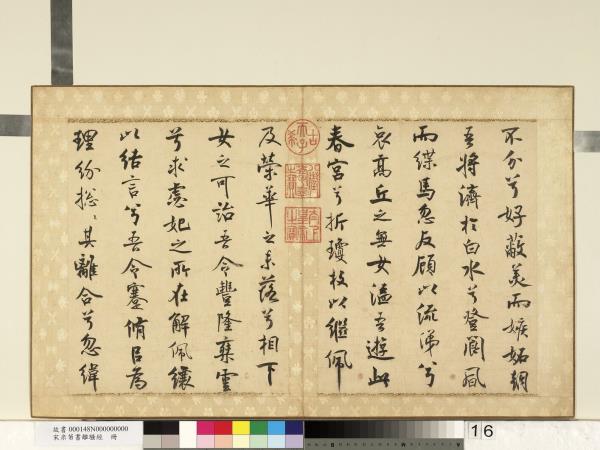 不分兮好蔽美而嫉妬朝
吾將濟於白水兮登閬風
而緤馬忽反顧以流涕兮
哀高丘之無女溘吾遊此
春宮兮折瓊枝以繼佩
及榮華之未落兮相下
女之可詒吾令豐隆椉雲
兮求虙妃之所在解佩纕
以結言兮吾令蹇脩㠯為
理紛揔〻其離合兮忽緯
故書 000148N000000000
宋米芾書離騷經 冊
16